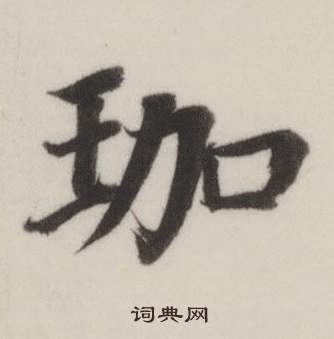 珈
词典网